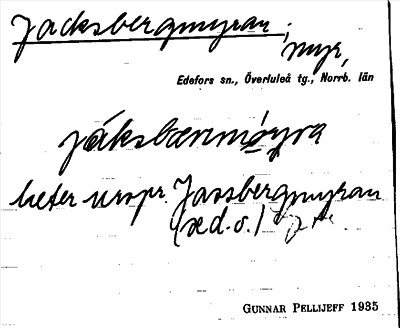 Jacksbergmyran,
myr,
Edefors sn., Överluleå tg., Norrb. län
jáksbærmóyra
heter urspr. Jassbergmyran
(se d. o.)
GUNNAR PELLIJEFF 1935